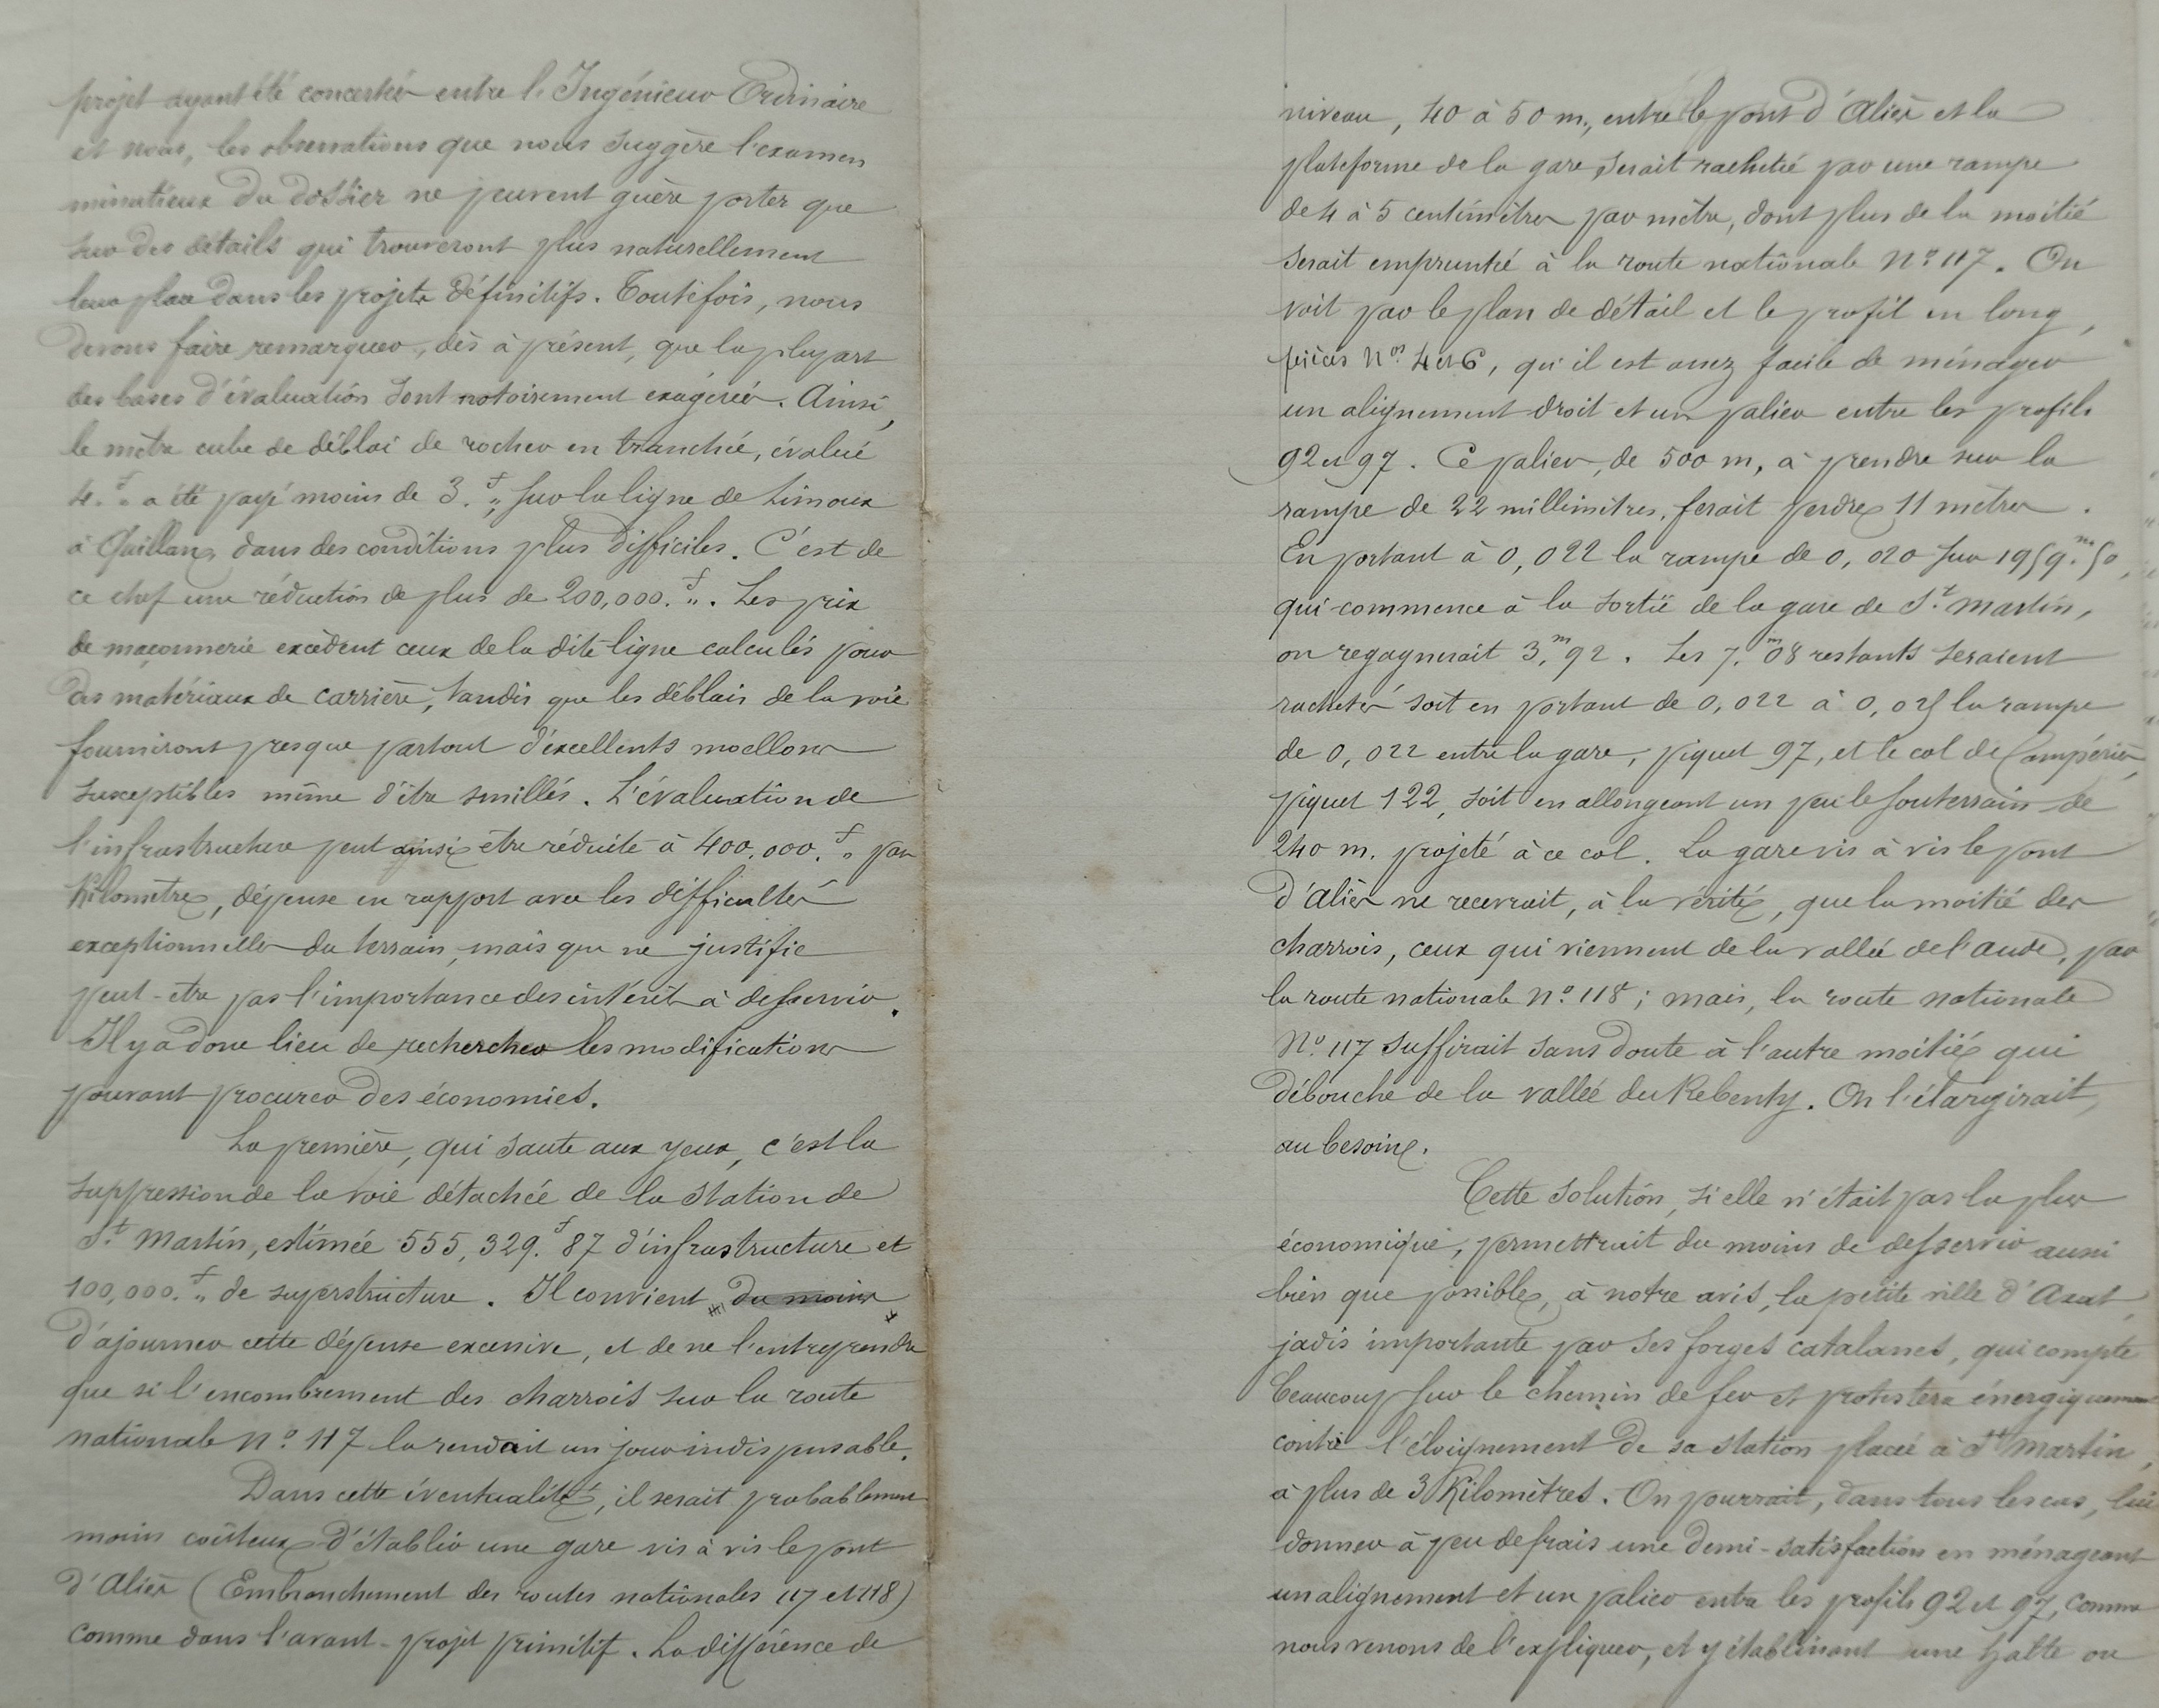 projet ayant été concerté entre l'Ingénieur Ordinaire
et nous, les observations que nous suggère l'examen
minutieux du dossier ne peuvent guère porter que
sur des détails qui trouveront plus naturellement
leur place dans les projets définitifs. Toutefois, nous
devons faire remarquer, dès à présent, que la plupart
des bases d'évaluation sont notoirement exagérées. Ainsi,
le mètre cube de déblai de rocher en tranchée, évalué
4.f„ a été payé moins de 3.f„ sur la ligne de Limoux
à Quillan, dans des conditions plus difficiles. C'est de
ce chef une réduction de plus de 200,000.f„. Les prix
de maçonnerie excèdent ceux de la dite ligne calculés pour
des matériaux de carrière, tandis que les déblais de la voie
fourniront presque partout d'excellents moellons
susceptibles même d'être smillés. L'évaluation de
l'infrastructure peut ainsi être réduite à 400.000.f„ par
Kilomètre, dépense en rapport avec les difficultés
exceptionnelles du terrain, mais que ne justifie
peut-être pas l'importance des intérêts à desservir.
Il y a donc lieu de rechercher les modifications
pouvant procurer des économies.
La première, qui saute aux yeux, c'est la
suppression de la voie détachée de la station de
St. Martin, estimée 555,329.f 87 d'infrastructure et
100,000.f„ de superstructure. Il convient du moins
d'ajourner cette dépense excessive, et de ne l'entreprendre
que si l'encombrement des charrois sur la route
nationale N° 117 la rendait un jour indispensable.
Dans cette éventualité, il serait probablement
moins coûteux d'établir une gare vis à vis le pont
d'Aliès (Embranchement des routes nationales 117 et 118)
comme dans l'avant-projet primitif. La différence de
niveau, 40 à 50 m., entre le pont d'Aliès et la
plateforme de la gare, serait rachetée par une rampe
de 4 à 5 centimètres par mètre, dont plus de la moitié
serait empruntée à la route nationale N° 117. On
voit par le plan de détail et le profil en long,
pièces Nos 4 et 6, qu'il est assez facile de ménager
un alignement droit et un palier entre les profils
92 et 97. Ce palier, de 500 m, à prendre sur la
rampe de 22 millimètres, ferait perdre 11 mètres.
En portant à 0,022 la rampe de 0,020 sur 1959.m50,
qui commence à la sortie de la gare de St. Martin,
on regagnerait 3.m92. Les 7.m08 restants seraient
rachetés soit en portant de 0,022 à 0,025 la rampe
de 0,022 entre la gare, piquet 97, et le col de Campérié,
piquet 122, soit en allongeant un peu le souterrain de
240 m. projeté à ce col. La gare vis à vis le pont
d'Aliès ne recevrait, à la vérité, que la moitié des
charrois, ceux qui viennent de la vallée de l'aude, par
la route nationale N° 118; mais, la route nationale
N° 117 suffirait sans doute à l'autre moitié qui
débouche de la vallée du Rebenty. On l'élargirait,
au besoin.
Cette solution, si elle n'était pas la plus
économique, permettrait du moins de desservir aussi
bien que possible, à notre avis, la petite ville d'Axat,
jadis importante par ses forges catalanes, qui compte
beaucoup sur le chemin de fer et protestera énergiquement
contre l'éloignement de sa station placée à St Martin,
à plus de 3 Kilomètres. On pourrait, dans tous les cas, lui
donner à peu de frais une demi-satisfaction en ménageant
un alignement et un palier entre les profils 92 et 97, comme
nous venons de l'expliquer, et y établissant une halte ou